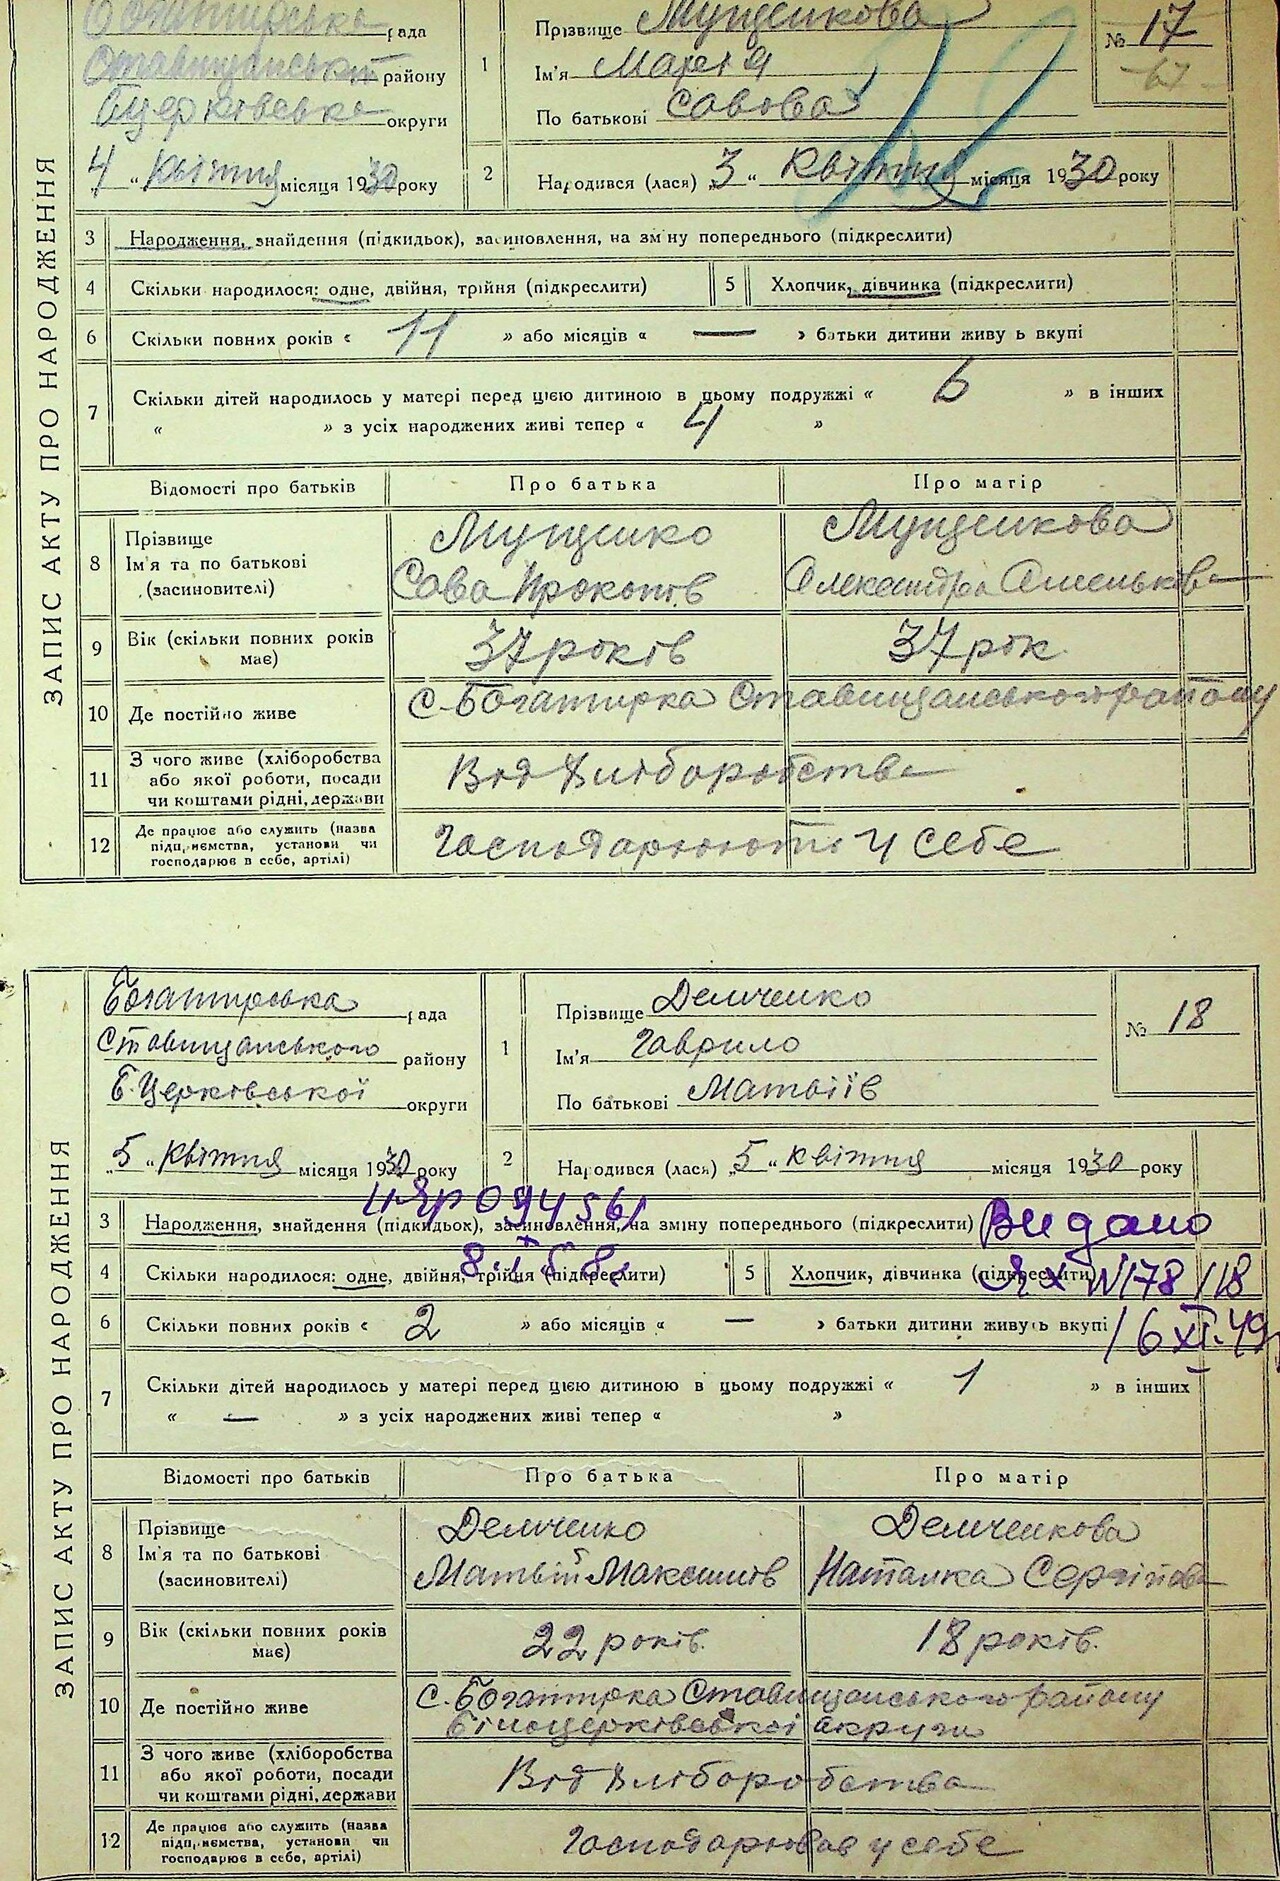 ЗАПИС АКТУ ПРО НАРОДЖЕННЯ
Богатирська рада
Ставищанський району
Бцерківська округи
4 " Квітня місяця 1930 року
1
Прізвище
Ім'я Марія
По батькові Савова
№ 17
2
Народився (лася) „3 " Квітня місяця 1930 року
3
Народження, знайдення (підкидьок), засиновлення, на зміну попереднього (підкреслити)
4
Скільки народилося: одне, двійня, трійня (підкреслити)
5
Хлопчик, дівчинка (підкреслити)
6
Скільки повних років « 11 » або місяців « — » батьки дитини живуть вкупі
7
Скільки дітей народилось у матері перед цією дитиною в цьому подружжі « 6 » в інших
« » з усіх народжених живі тепер « 4 »
Відомості про батьків
Про батька
Про матір
8
Прізвище
Ім'я та по батькові
(засиновителі)
Сава Прокопів
Александра
9
Вік (скільки повних років
має)
37 років
37 рок.
10
Де постійно живе
с. Богатирка Ставищанського району
11
З чого живе (хліборобства
або якої роботи, посади
чи коштами рідні, держави
Від Хліборобства
12
Де працює або служить (назва
підприємства, установи чи
господарює в себе, артілі)
Господарюють у себе
ЗАПИС АКТУ ПРО НАРОДЖЕННЯ
Богатирська рада
Ставищанського району
Б. Церківської округи
„5 " Квітня місяця 1930 року
1
Прізвище Демченко
Ім'я Гаврило
По батькові Матвіїв
№ 18
2
Народився (лася) „5 " Квітня місяця 1930 року
094561
3
Народження, знайдення (підкидьок), засиновлення, на зміну попереднього (підкреслити) Видано
4
Скільки народилося: одне, двійня, трійня (підкреслити)
5
Хлопчик, дівчинка (підкреслити)
N178118
6
Скільки повних років « 2 » або місяців « — » батьки дитини живуть вкупі
16 XI. 49
7
Скільки дітей народилось у матері перед цією дитиною в цьому подружжі « 1 » в інших
« — » з усіх народжених живі тепер « »
Відомості про батьків
Про батька
Про матір
8
Прізвище
Ім'я та по батькові
(засиновителі)
Демченко
Матвій Максимів
Демченкова
Наталка Сергіївна
9
Вік (скільки повних років
має)
22 років.
18 років.
10
Де постійно живе
с. Богатирка Ставищанського району
Білоцерківської округи
11
З чого живе (хліборобства
або якої роботи, посади
чи коштами рідні, держави
Від Хліборобства
12
Де працює або служить (назва
підприємства, установи чи
господарює в себе, артілі)
Господарював у себе